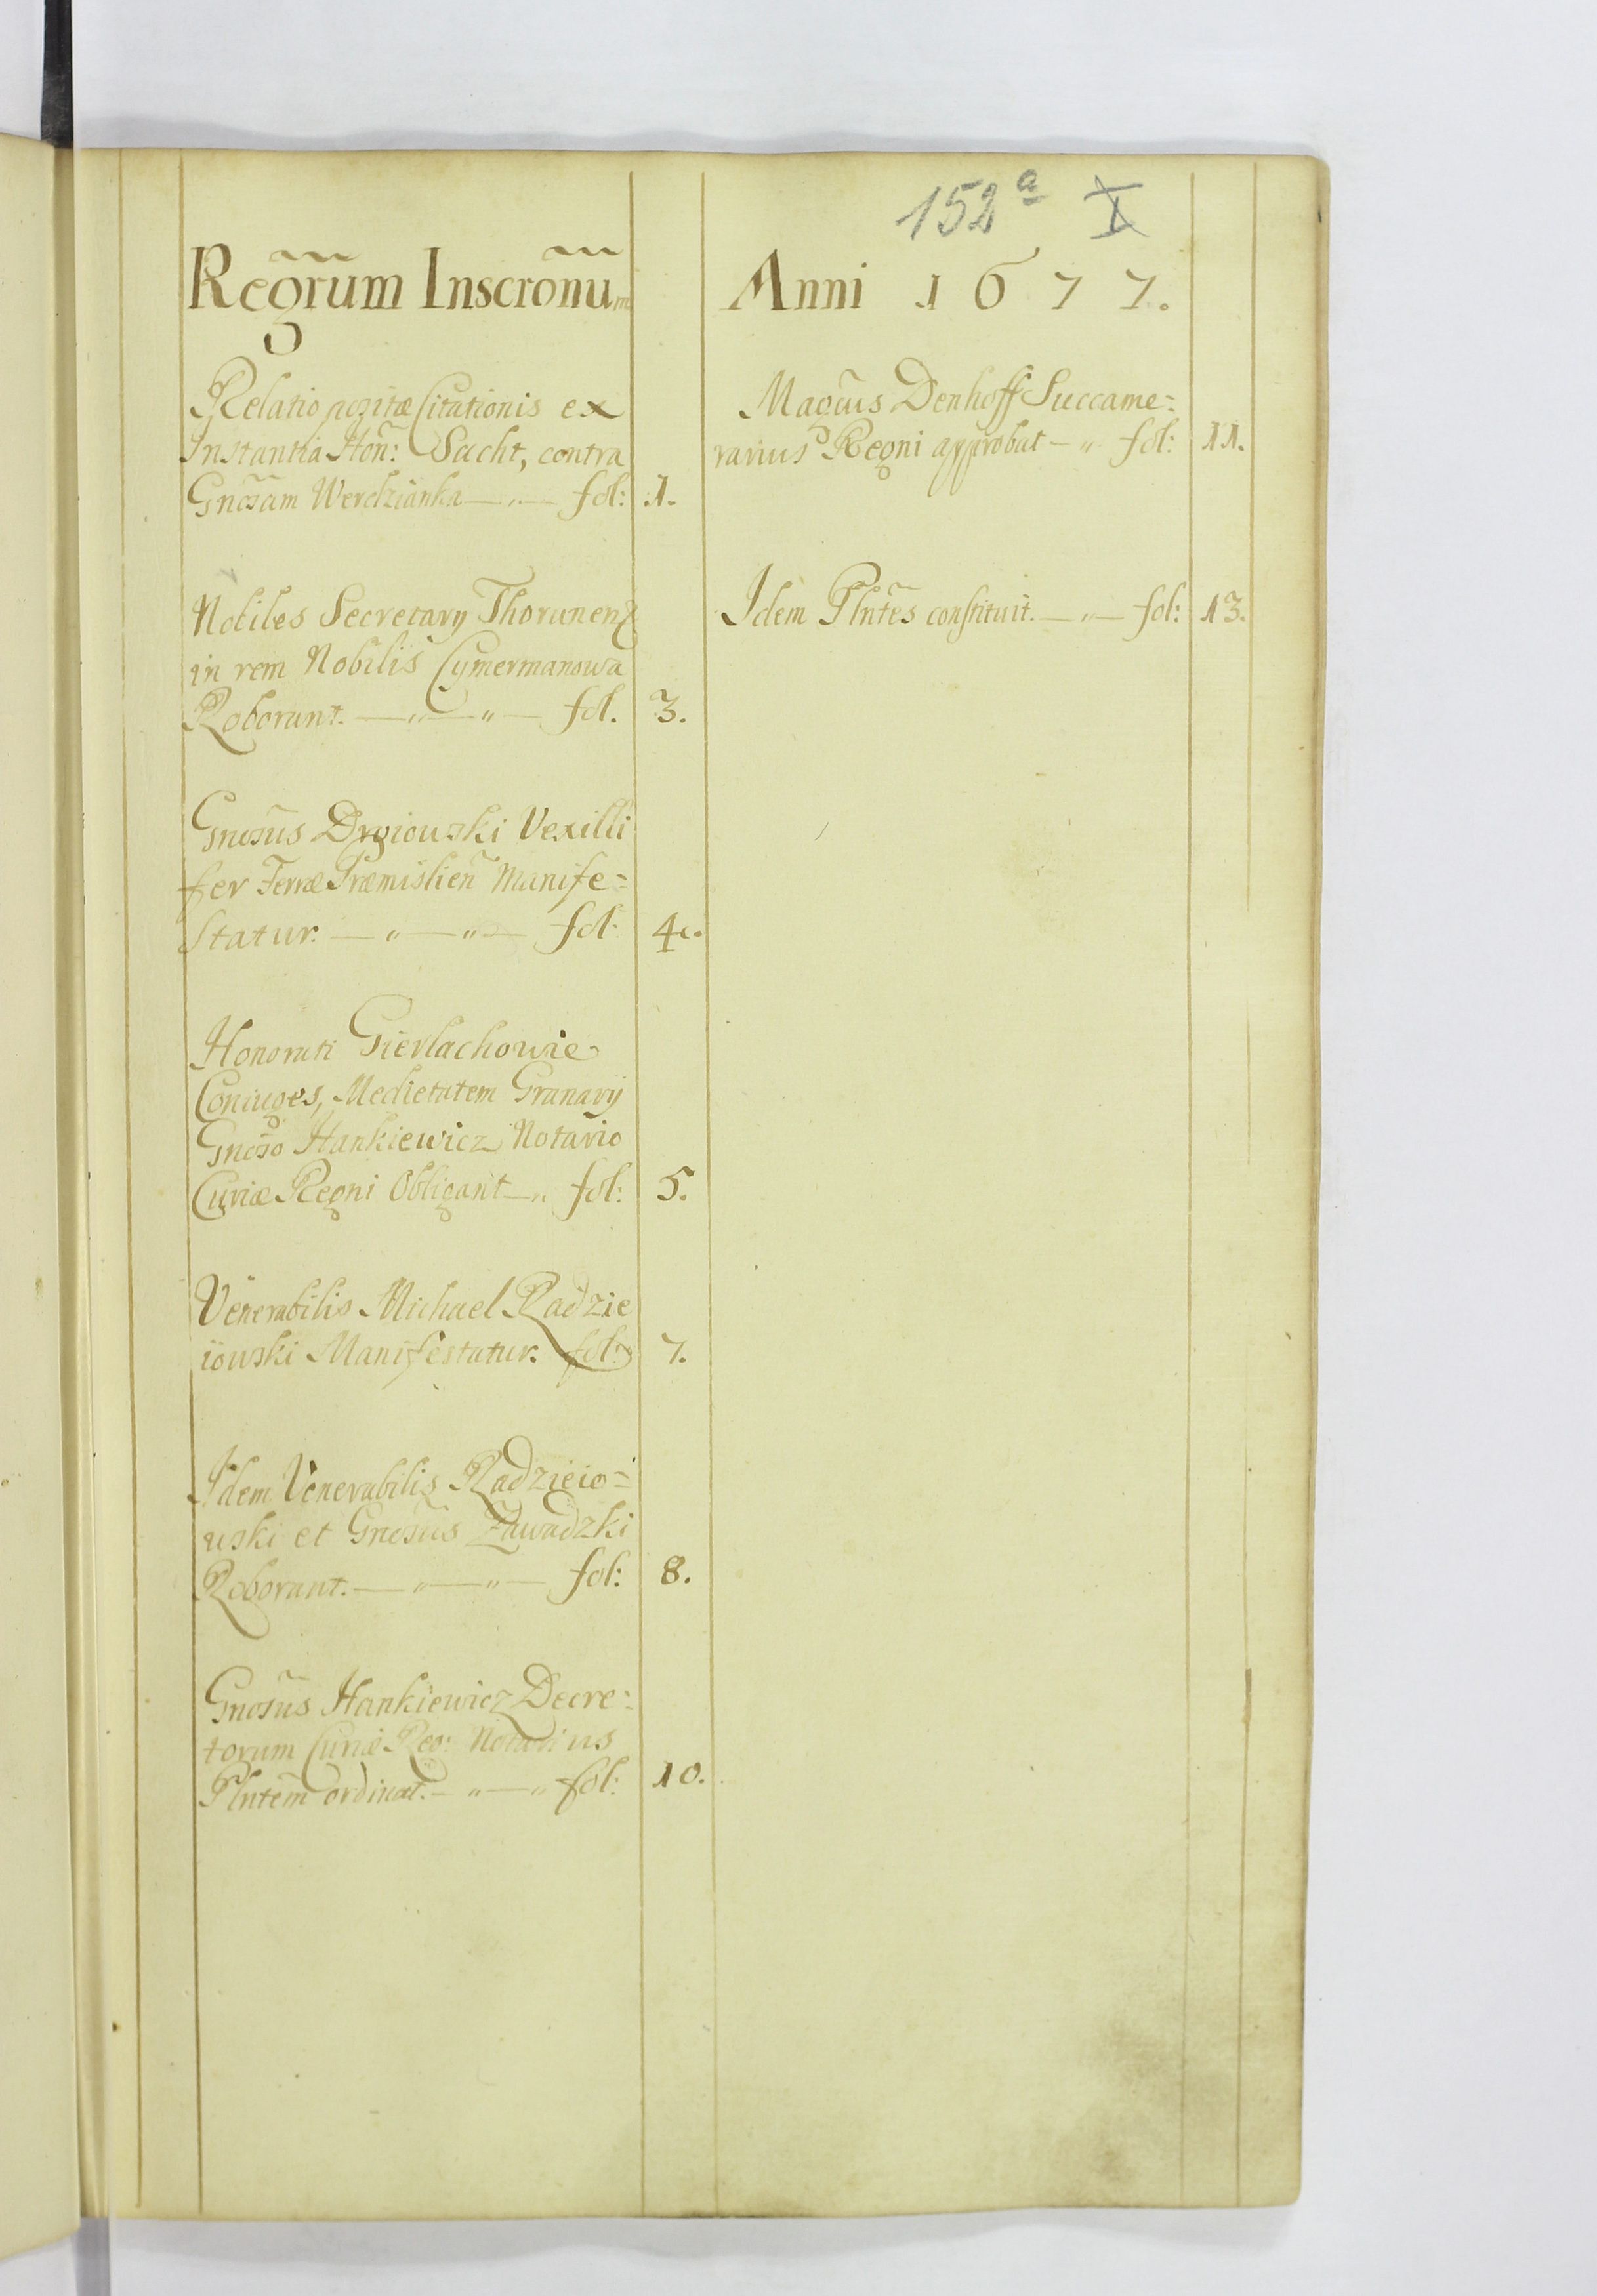 152 a X
Regrum Inscronum
Anni 1677.
Relatio pozitæ Citationis ex
Instantia Hon: Sacht, contra
Gnosam Werdzianka —„— fol: 1.
Nobiles Secretary Thorunen
in rem Nobilis Cymermanowa
Roborant. —„—„— fol. 3.
Gnosus Drgiowski Vexilli
fer Terræ Præmislien Manife=
statur. —„—„— fol: 4.
Honorati Gierlachowie
Coniuges, Medietatem Granary
Gnoso Hankiewicz Notario
Curiæ Regni Obligant —„ fol: 5.
Venerabilis Michael Radzie
iowski Manifestatur. fol: 7.
Idem Venerabilis Radzieio=
wski et Gnosus Zawadzki
Roborant. —„—„— fol: 8.
Gnosus Hankiewicz Decre=
torum Curiæ Reg: Notarius
Plntem ordinat. —„—„ fol: 10.
Magcus Denhoff Succame=
rarius Regni approbat —„ fol: 11.
Idem Plntes constituit. —„— fol: 13.